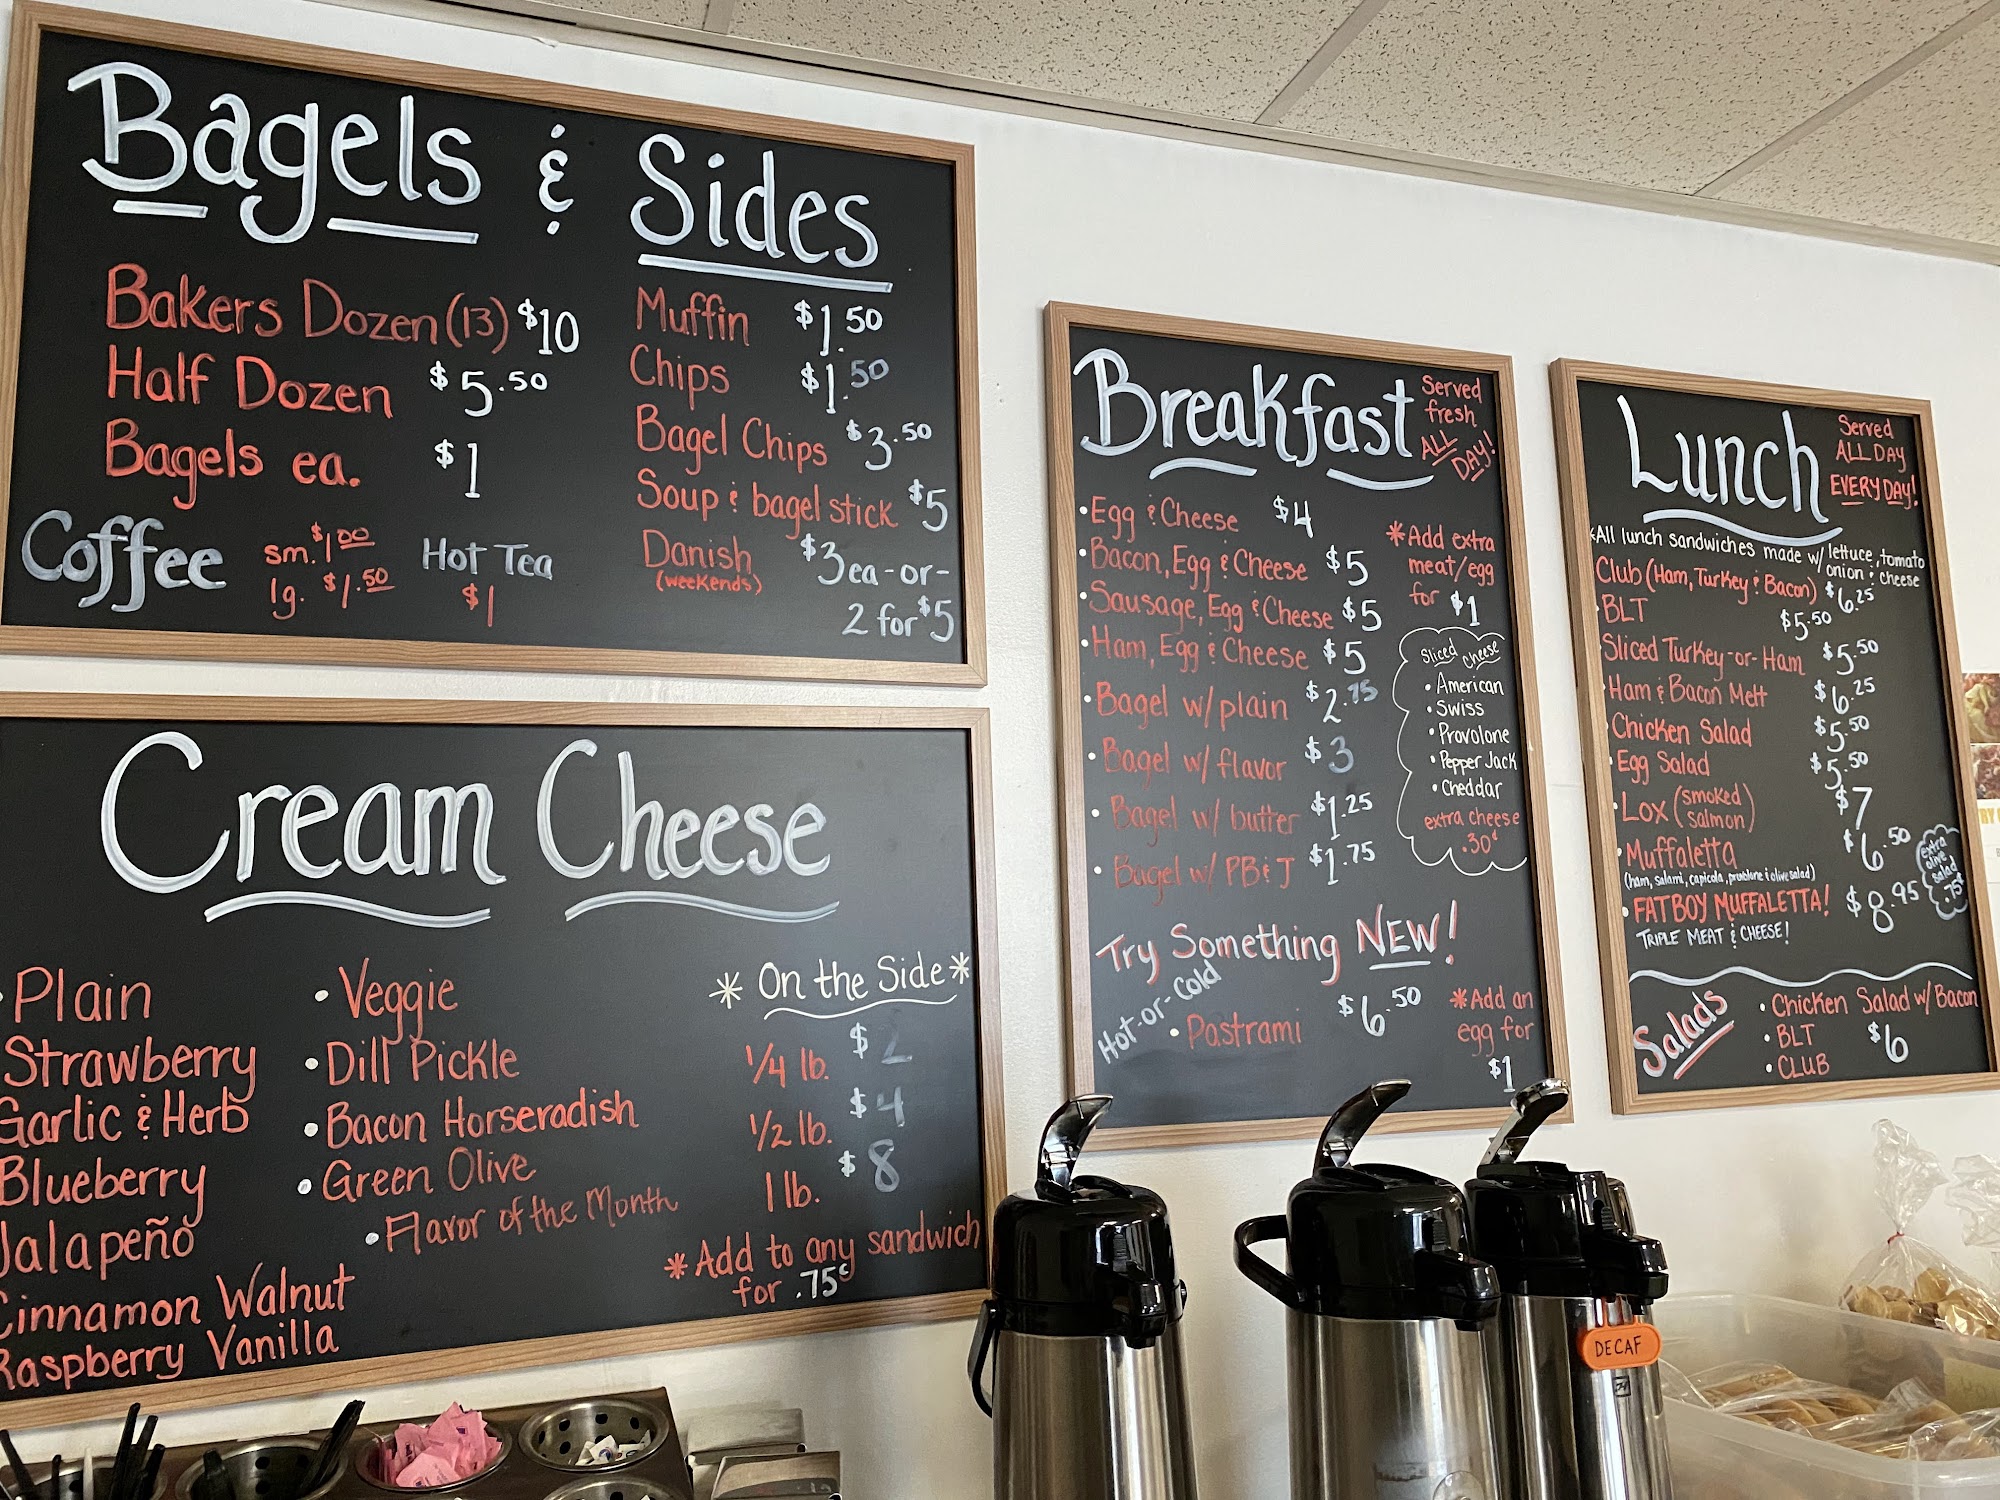 Bagels & Sides
Bakers Dozen (13) $10
Half Dozen $5.50
Bagels ea. $1
Coffee sm. $1.00
lg. $1.50
Hot Tea
$1
Muffin $1.50
Chips $1.50
Bagel Chips $3.50
Soup & bagel stick $5
Danish $3 ea-or-
(weekends)
2 for $5
Cream Cheese
Plain
Strawberry
Garlic & Herb
Blueberry
Jalapeño
Cinnamon Walnut
Raspberry Vanilla
• Veggie
• Dill Pickle
• Bacon Horseradish
• Green Olive
• Flavor of the Month
* On the Side *
1/4 lb. $2
1/2 lb. $4
1 lb. $8
* Add to any sandwich
for .75¢
Breakfast
Served
fresh
ALL
DAY!
• Egg & Cheese $4
• Bacon, Egg & Cheese $5
• Sausage, Egg & Cheese $5
• Ham, Egg & Cheese $5
• Bagel w/ plain $2.75
• Bagel w/ flavor $3
• Bagel w/ butter $1.25
• Bagel w/ PB & J $1.75
* Add extra
meat/egg
for $1
Sliced Cheese
• American
• Swiss
• Provolone
• Pepper Jack
• Cheddar
extra cheese
.30¢
Try Something NEW!
Hot-or-Cold
• Pastrami $6.50
* Add an
egg for
$1
Lunch
Served
ALL DAY
EVERY DAY!
*All lunch sandwiches made w/ lettuce, tomato
onion & cheese
Club (Ham, Turkey & Bacon) $6.25
BLT $5.50
Sliced Turkey-or-Ham $5.50
• Ham & Bacon Melt $6.25
• Chicken Salad $5.50
• Egg Salad $5.50
• Lox (smoked salmon) $7
• Muffaletta $6.50
(ham, salami, capicola, provolone & olive salad)
extra
olive
salad
.75¢
• FATBOY MUFFALETTA! $8.95
TRIPLE MEAT & CHEESE!
Salads
• Chicken Salad w/ Bacon
• BLT $6
• CLUB
DECAF